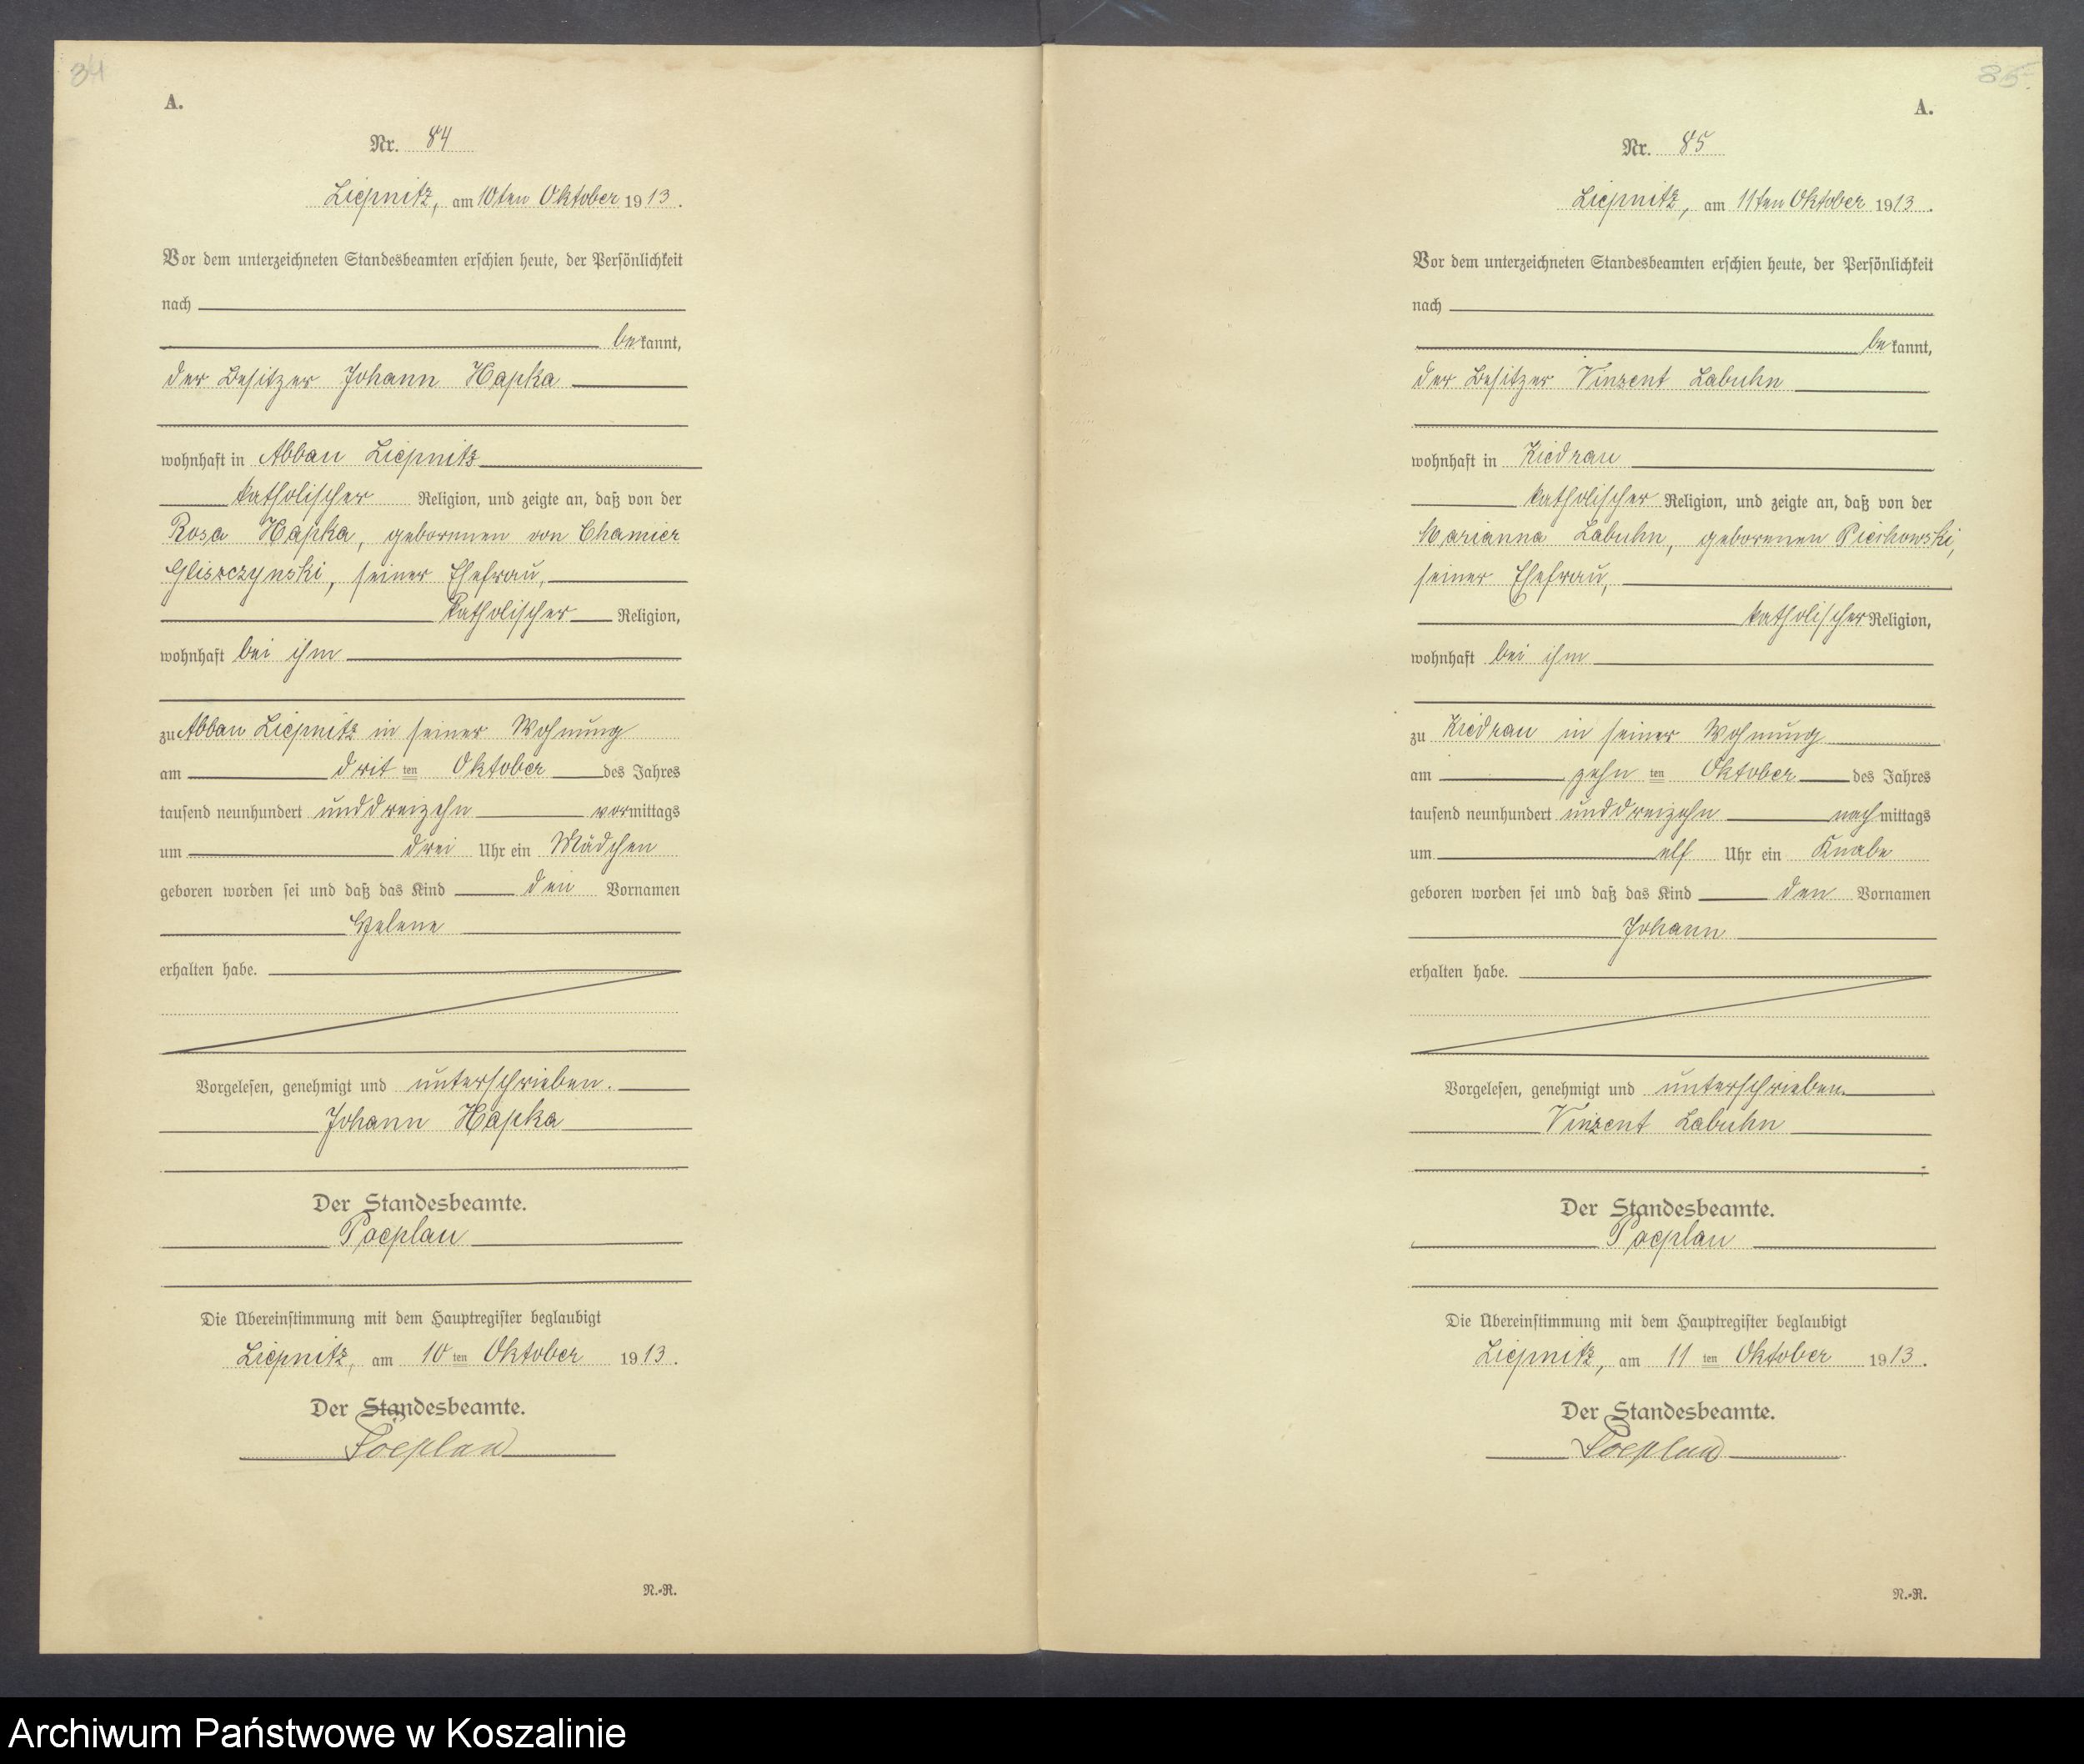 84
A.
Nr. 84
Liepnitz, am 10ten Oktober 1913.
Vor dem unterzeichneten Standesbeamten erschien heute, der Persönlichkeit
nach
bekannt,
der Besitzer Johann Hapka
wohnhaft in Abbau Liepnitz
katholischer Religion, und zeigte an, daß von der
Rosa Hapka, geborenen von Chamier
Gliszczynski, seiner Ehefrau,
katholischer Religion,
wohnhaft bei ihm
zu Abbau Liepnitz in seiner Wohnung
am dritten Oktober des Jahres
tausend neunhundert unddreizehn vormittags
um drei Uhr ein Mädchen
geboren worden sei und daß das Kind den Vornamen
Helene
erhalten habe.
Vorgelesen, genehmigt und unterschrieben.
Johann Hapka
Der Standesbeamte.
Poeplau
Die Übereinstimmung mit dem Hauptregister beglaubigt
Liepnitz, am 10ten Oktober 1913.
Der Standesbeamte.
Poeplau
N.-R.
85
A.
Nr. 85
Liepnitz, am 11ten Oktober 1913.
Vor dem unterzeichneten Standesbeamten erschien heute, der Persönlichkeit
nach
bekannt,
der Besitzer Vinzent Labuhn
wohnhaft in Kiedrau
katholischer Religion, und zeigte an, daß von der
Marianna Labuhn, geborenen Piechowski,
seiner Ehefrau,
katholischer Religion,
wohnhaft bei ihm
zu Kiedrau in seiner Wohnung
am zehnten Oktober des Jahres
tausend neunhundert unddreizehn nachmittags
um elf Uhr ein Knabe
geboren worden sei und daß das Kind den Vornamen
Johann
erhalten habe.
Vorgelesen, genehmigt und unterschrieben.
Vinzent Labuhn
Der Standesbeamte.
Poeplau
Die Übereinstimmung mit dem Hauptregister beglaubigt
Liepnitz, am 11ten Oktober 1913.
Der Standesbeamte.
Poeplau
N.-R.
Archiwum Państwowe w Koszalinie